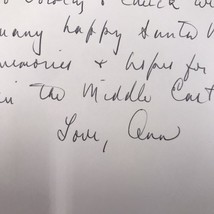 many happy Santa
memories & hopes for
in the Middle East
Love, Ann